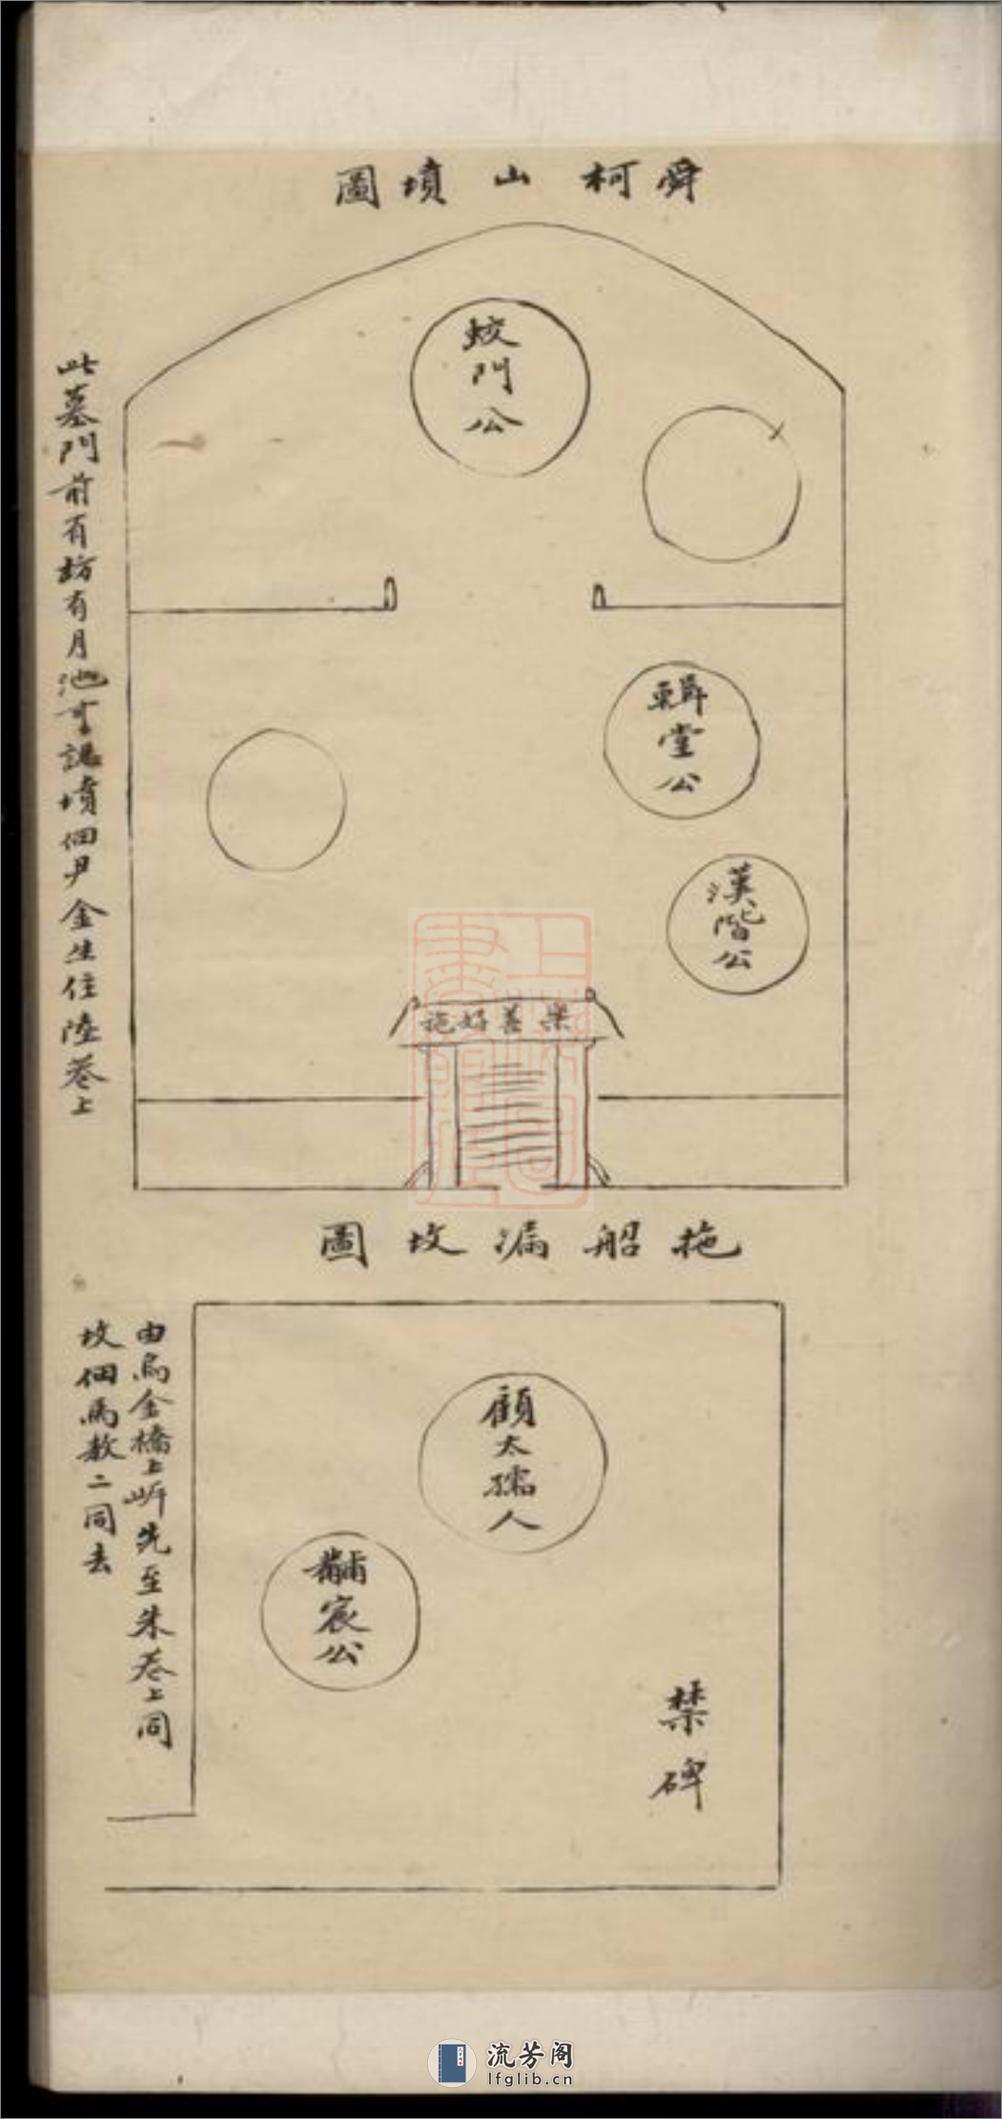 舜柯山墳圖
蛟門公
輯堂公
漢階公
樂善好施
此墓門前有坊有月池可認墳佃尹金生住陸巷上
拖船漏坟圖
顧太孺人
黼宸公
禁碑
由烏金橋上岍先至朱巷上同
坟佃馬教二同去
上海圖書館藏
流芳阁
lfglib.cn